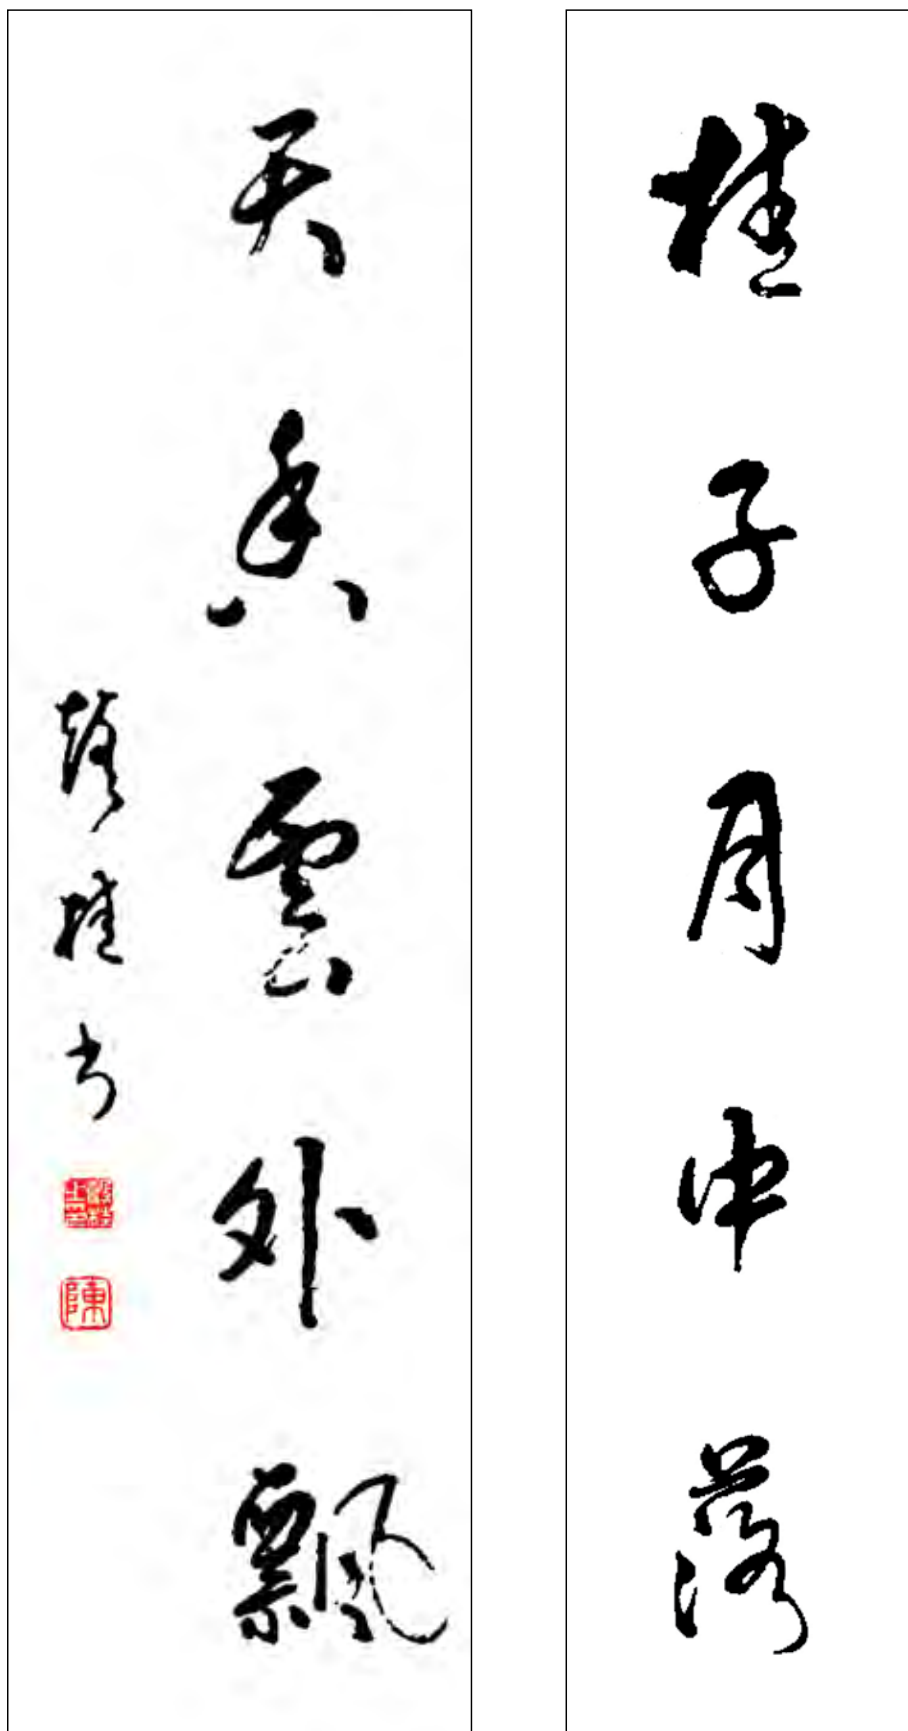 桂子月中落
天香雲外飄
植書
陳